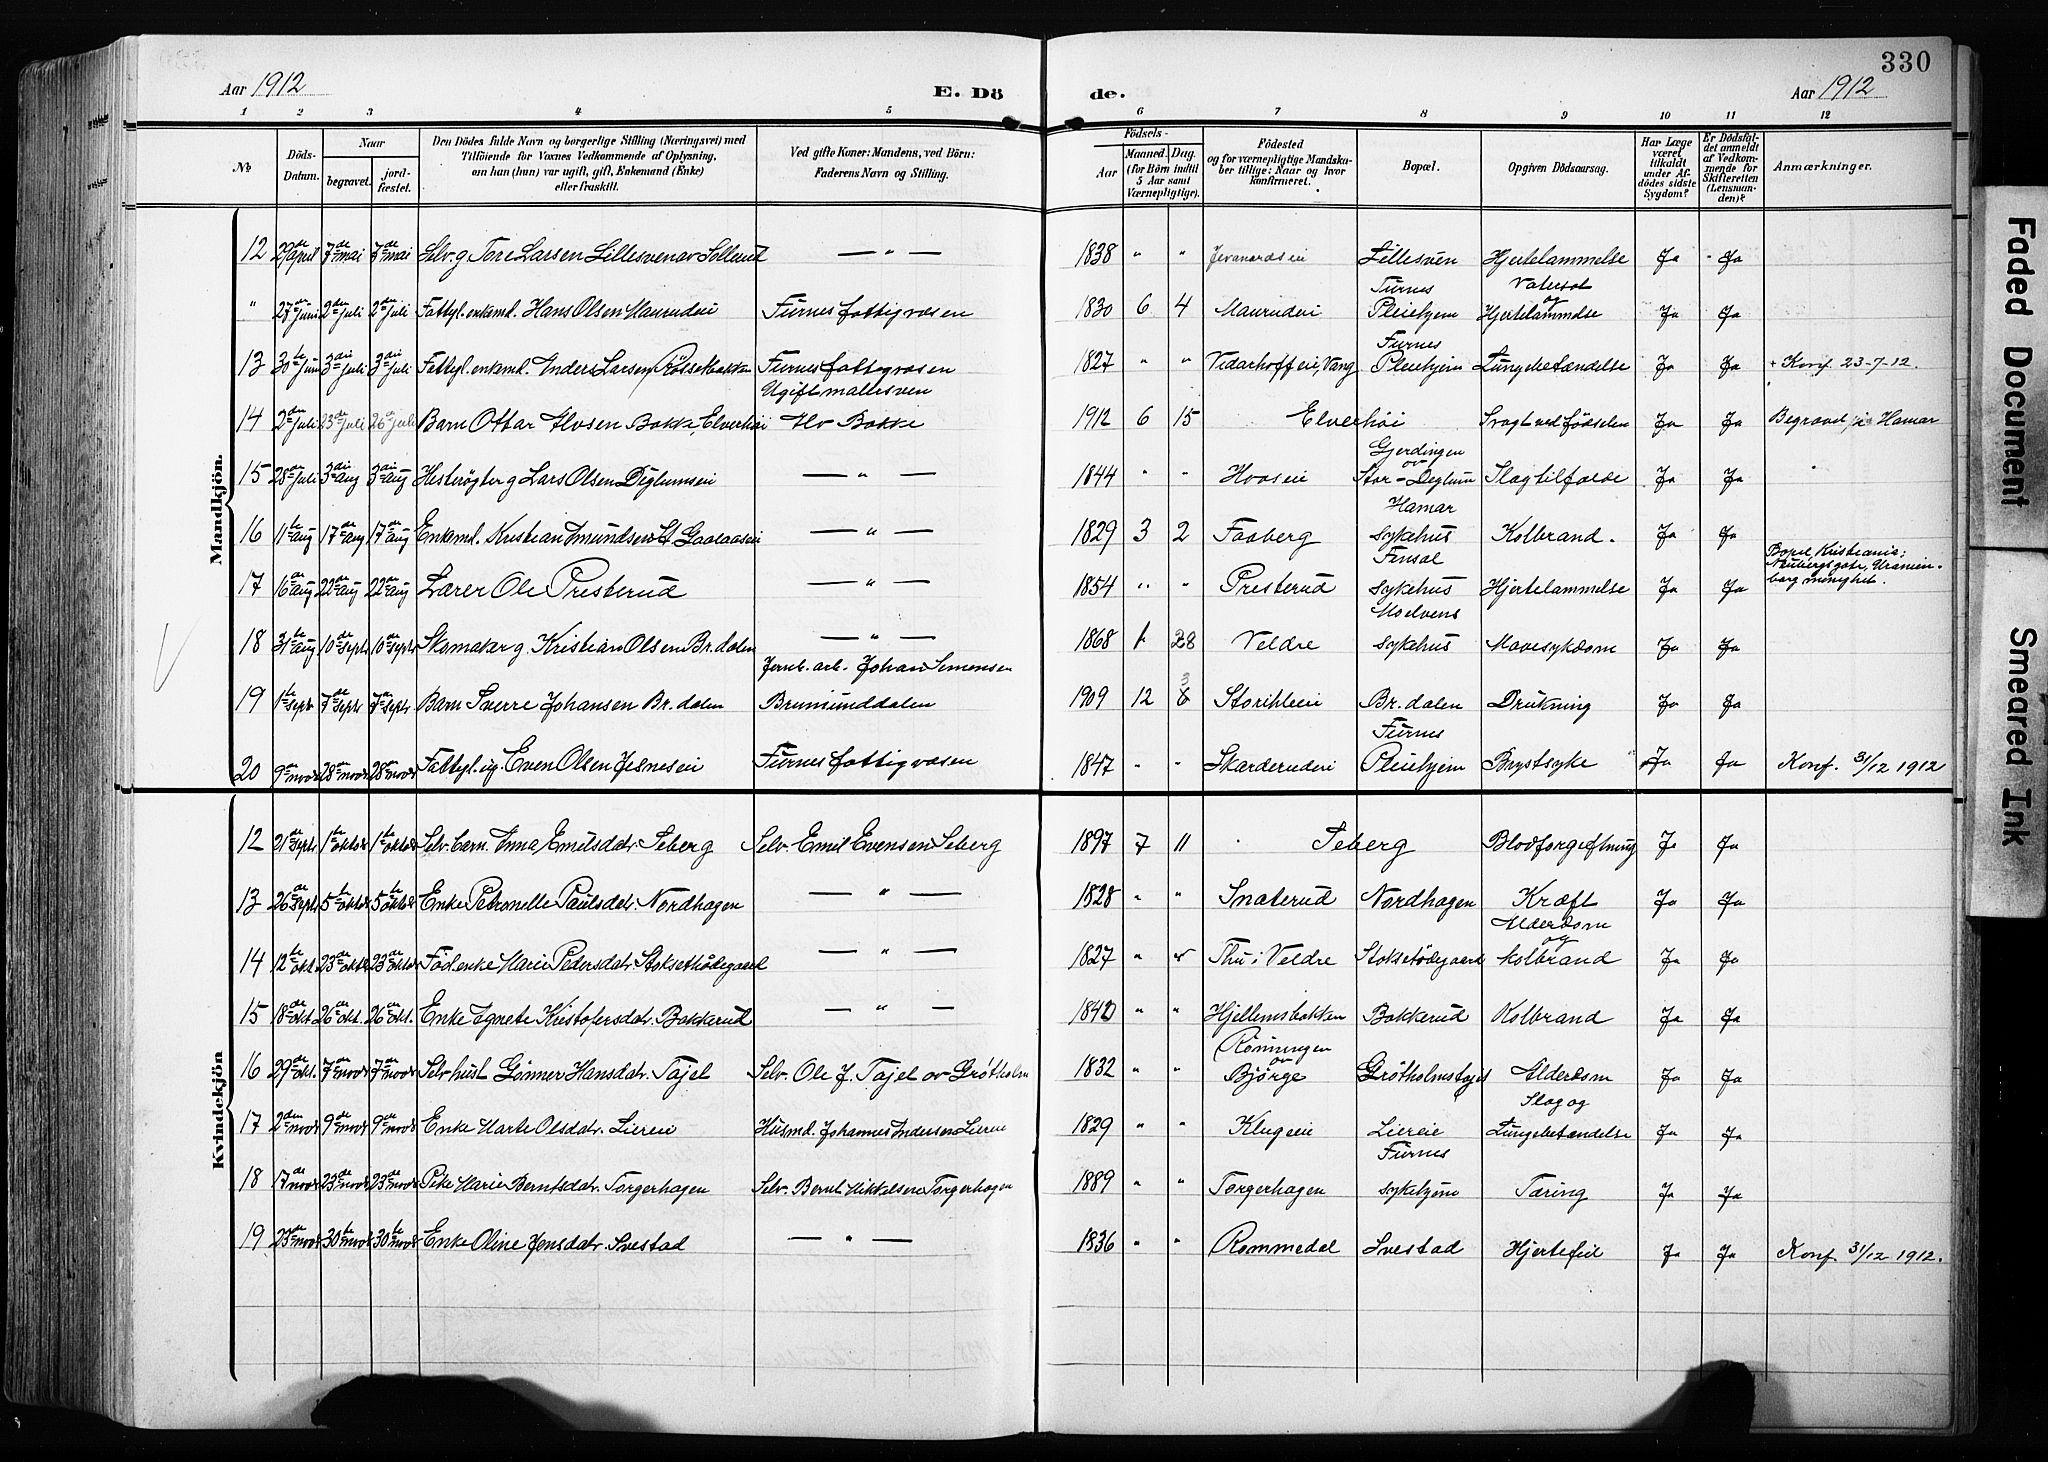 330
Aar 1912 E. Dö de. Aar 1912
1 2 3 4 5 6 7 8 9 10 11 12
№
Döds-Datum.
Naar
begravet.
jord-fæstet.
Den Dödes fulde Navn og borgerlige Stilling (Næringsvei) med
Tilföiende for Voxnes Vedkommende af Oplysning,
om han (hun) var ugift, gift, Enkemand (Enke)
eller fraskilt.
Ved gifte Koner: Mandens, ved Börn:
Faderens Navn og Stilling.
Födsels-
Aar
Maaned. Dag.
(for Börn indtil
5 Aar samt
Værnepligtige).
Födested
og for værnepligtige Mandska-
ber tillige: Naar og hvor
konfirmeret.
Bopæl.
Opgiven Dödsaarsag.
Har Læge
været
tilkaldt
under Af-
dödes sidste
Sygdom?
Er Dödsfal-
det anmeldt
af Vedkom-
mende for
Skifteretten
(Lensman-
den)?
Anmærkninger.
Mandkjön.
12 29de april 7de mai 7de mai Selv. g Tore Larsen Lillesvenav Sollerud — " — 1838 " " Lillesven Hjertelammelse Ja Ja
" 27de juni 2den juli 2den juli Fattigl. enkmd. Hans Olsen Maurudei Furnes fattigvæsen 1830 6 4 Maurudei Furnes Pleiehjem Vatersot og Hjertelammelse Ja Ja
13 30te juni 3die juli 3die juli Fattigl. enkmd. Anders Larsen Rölsetbakken Furnes fattigvæsen 1827 " " Vidarhoff eie, Vang Furnes Pleiehjem Lungebetændelse Ja Ja Konf. 23-7-12.
14 2den juli 23de juli 26de juli Barn Ottar Alvsen Bakke, Elverhöi Ugift Alv Bakke 1912 6 15 Elverhöi Svagt ved födselen Ja Ja Begravet i Hamar
15 28de juli 3die aug 3die aug Hesterögter g Lars Olsen Diglumsei — " — 1844 " " Hoosei Gjerdingen av Stor-Deglum Slagtilfælde Ja Ja
16 11te aug 17de aug 17de aug Enkmd. Kristian Amundsen St. Gaalaasei — " — 1829 3 2 Faaberg Hamar Sykehus Kolbrand. Ja Ja
17 16de aug 22de aug 22de aug Lærer Ole Presterud — " — 1854 " " Presterud Finsal Sykehus Hjertelammelse Ja Ja Bopel, Kristiania: Neubergsgate, Uranienborg menighet.
18 31te aug 10de septr 10de septr Skomaker g. Kristian Olsen Br. dalen — " — 1868 1 28 Veldre Moelvens sykehus Mavesykdom Ja Ja
19 1ste septr 7de septr 7de septr Barn Sverre Johansen Br. dalen Jernb. arb. Johan Simensen Brumunddalen 1909 12 3 Storihleei Br. dalen Drukning Ja Ja
20 9de novr 28de novr 28de novr Fattigl. ug. Even Olsen Jesnesei Furnes fattigvæsen 1847 " " Skarderudei Furnes Pleiehjem Brystsyke Ja Ja Konf. 31/12 1912
Kvindekjön
12 21de septr 1ste oktober 1ste oktober Selv. barn. Anna Emilsdatr. Seberg Selv. Emil Evensen Seberg 1897 7 11 Seberg Blodforgiftning Ja Ja
13 26de septr 5te oktbr 5te oktbr Enke Petronelle Paulsdatr. Nordhagen — " — 1828 " " Snaterud Nordhagen Kræft Ja Ja
14 12te okt. 23de oktbr 23de oktbr Föd. enke Marie Pedersdatr. Stoksethödegaard — " — 1827 " " Thu i Veldre Stoksetödegaard Alderdom og kolbrand Ja Ja
15 18de okt. 26de okt. 26de okt. Enke Agnete Kristofersdatr. Bakkerud — " — 1840 " " Hjellemsbakken Bakkerud Kolbrand Ja Ja
16 29de okt. 7de novr 7de novr Selv. hust. Günner Hansdatr. Tajet Selv. Ole J. Tajet av Grötholm 1832 " " Rönningen av Björge Grötholmstajet Alderdom Ja Ja
17 2den novr 9de novr 9de novr Enke Marte Olsdatr. Lierei Husmd. Johannes Andersen Liereie 1829 " " Klugeiei Liereie Slag og Lungebetændelse Ja Ja
18 17de novr 23de novr 23de novr Pike Marie Berntsdatr. Torgerhagen Selv. Bernt Mikkelsen Torgerhagen 1889 " " Torgerhagen Furnes sykehjem Tæring Ja Ja
19 23de novr 30te novr 30te novr Enke Oline Jensdatr. Svestad — " — 1836 " " Rommedal Svestad Hjertefeil Ja Ja Konf. 31/12 1912.
Faded Document
Smeared Ink